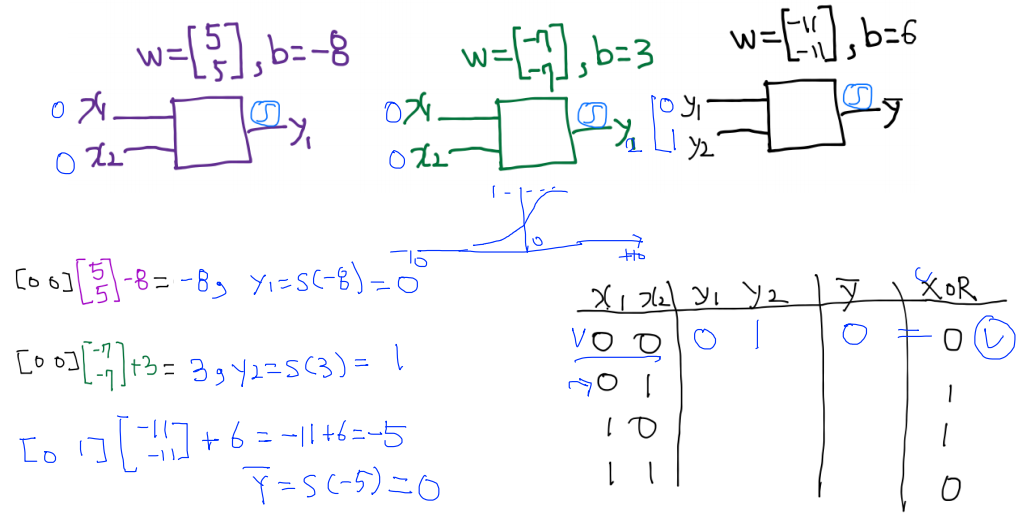 w=[5 5], b=-8
w=[-7 -7], b=3
w=[-11 -11], b=6
0 x1 S y1
0 x2
0 x1 S y1
0 x2 2
0 y1 S y̅
1 y2
1
-10 0 +10
[0 0][5 5]-8=-8, y1=S(-8)=0
[0 0][-7 -7]+3=3, y2=S(3)=1
[0 1][-11 -11]+6=-11+6=-5
y̅=S(-5)=0
x1 x2 y1 y2 y̅ XOR
V 0 0 0 1 0 = 0 V
→ 0 1 1
1 0 1
1 1 0